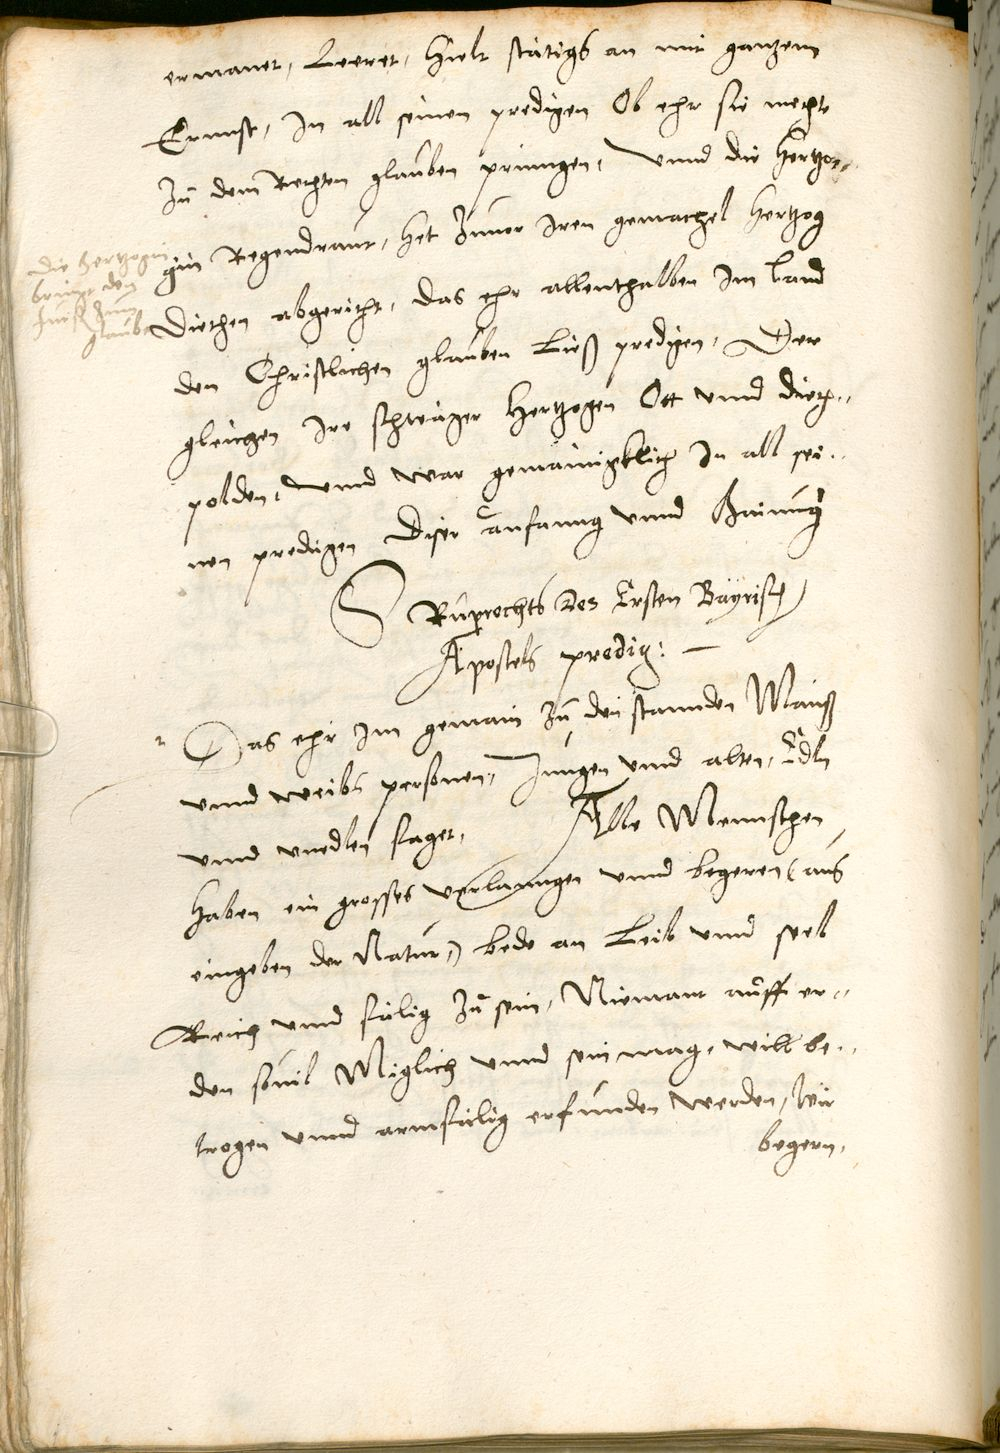 ermanet, Leeret, Hielt stätigs an mit gantzem
Ernnst, In all seinen predigen Ob ehr sie mechte
Zu dem Rechten glauben pringen, Vnnd die Hertzo-
gin Regendraut, Het Zuuor Iren gemachel Hertzog
Die Hertzogin
bringt den
Fürst Zum
glaube
Diethen abgericht, das ehr allenthalben Im Land
den Christlichen glauben Ließ predigen, Der
gleichen Ire schwäger Hertzogen Ott vnnd Dieth-
polden, Vnnd war gemainigklich In all sei-
nen predigen Diser anfanng vnnd Mainung
S Ruprechts Des Ersten Bayrisch
Apostels predig: —
Das ehr Im gemain Zu den stannden Manß
vnnd weibs personen, Jungen vnnd alten, Edln
vnnd vnedlen saget, Alle Mennschen
haben ein grosses verlanngen vnnd begeren (aus
eingeben der Natur,) bede an Leib vnnd seel
Reich vnnd sälig Zu sein, Niemant auff er-
den souil Miglich vnnd sein mag, will be-
trogen vnnd armsälig erfunden werden, Wir
begern,